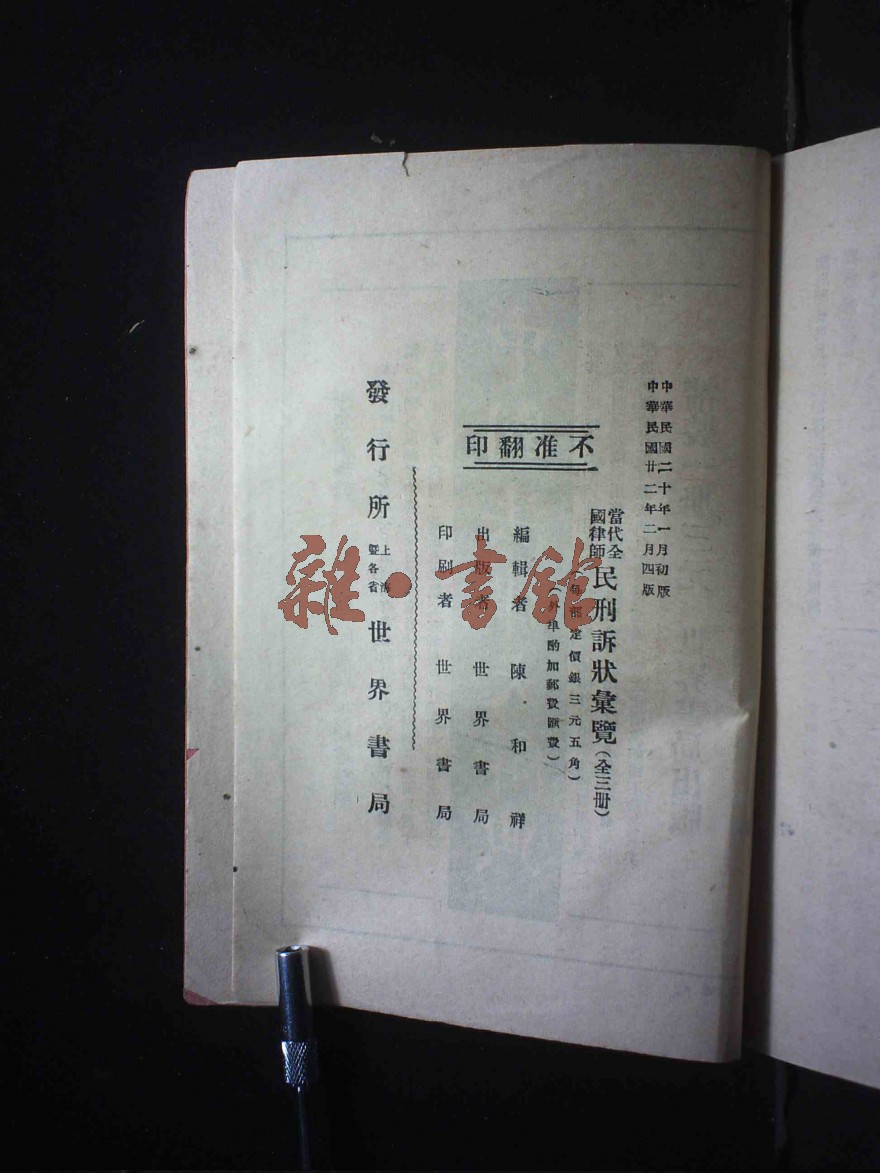 中華民國二十年一月初版
中華民國廿二年二月四版
不准翻印
當代全國律師民刑訴狀彙覽(全三册)
每部定價銀三元五角)
外埠酌加郵費匯費)
編輯者 陳和祥
出版者 世界書局
印刷者 世界書局
發行所 上海暨各省 世界書局
雜·書館